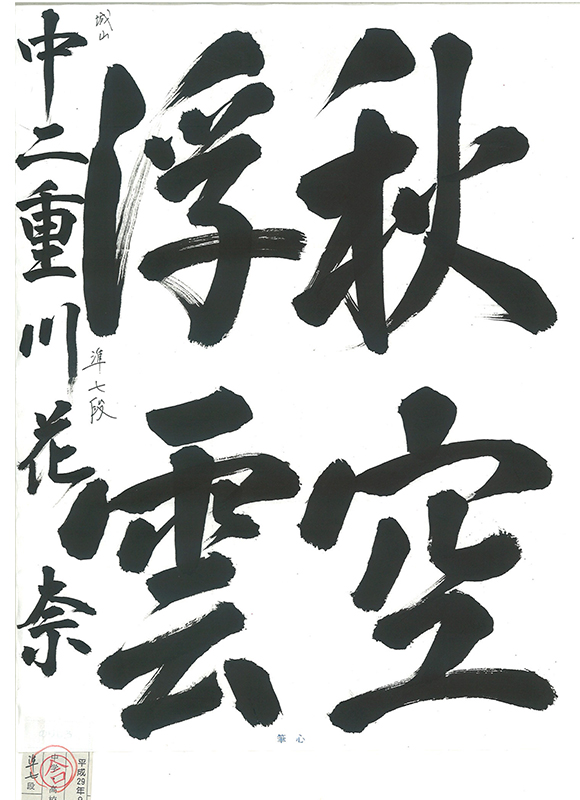 秋空
浮雲
城山
中二重川花奈
準七段
心筆
平成29年
準七段